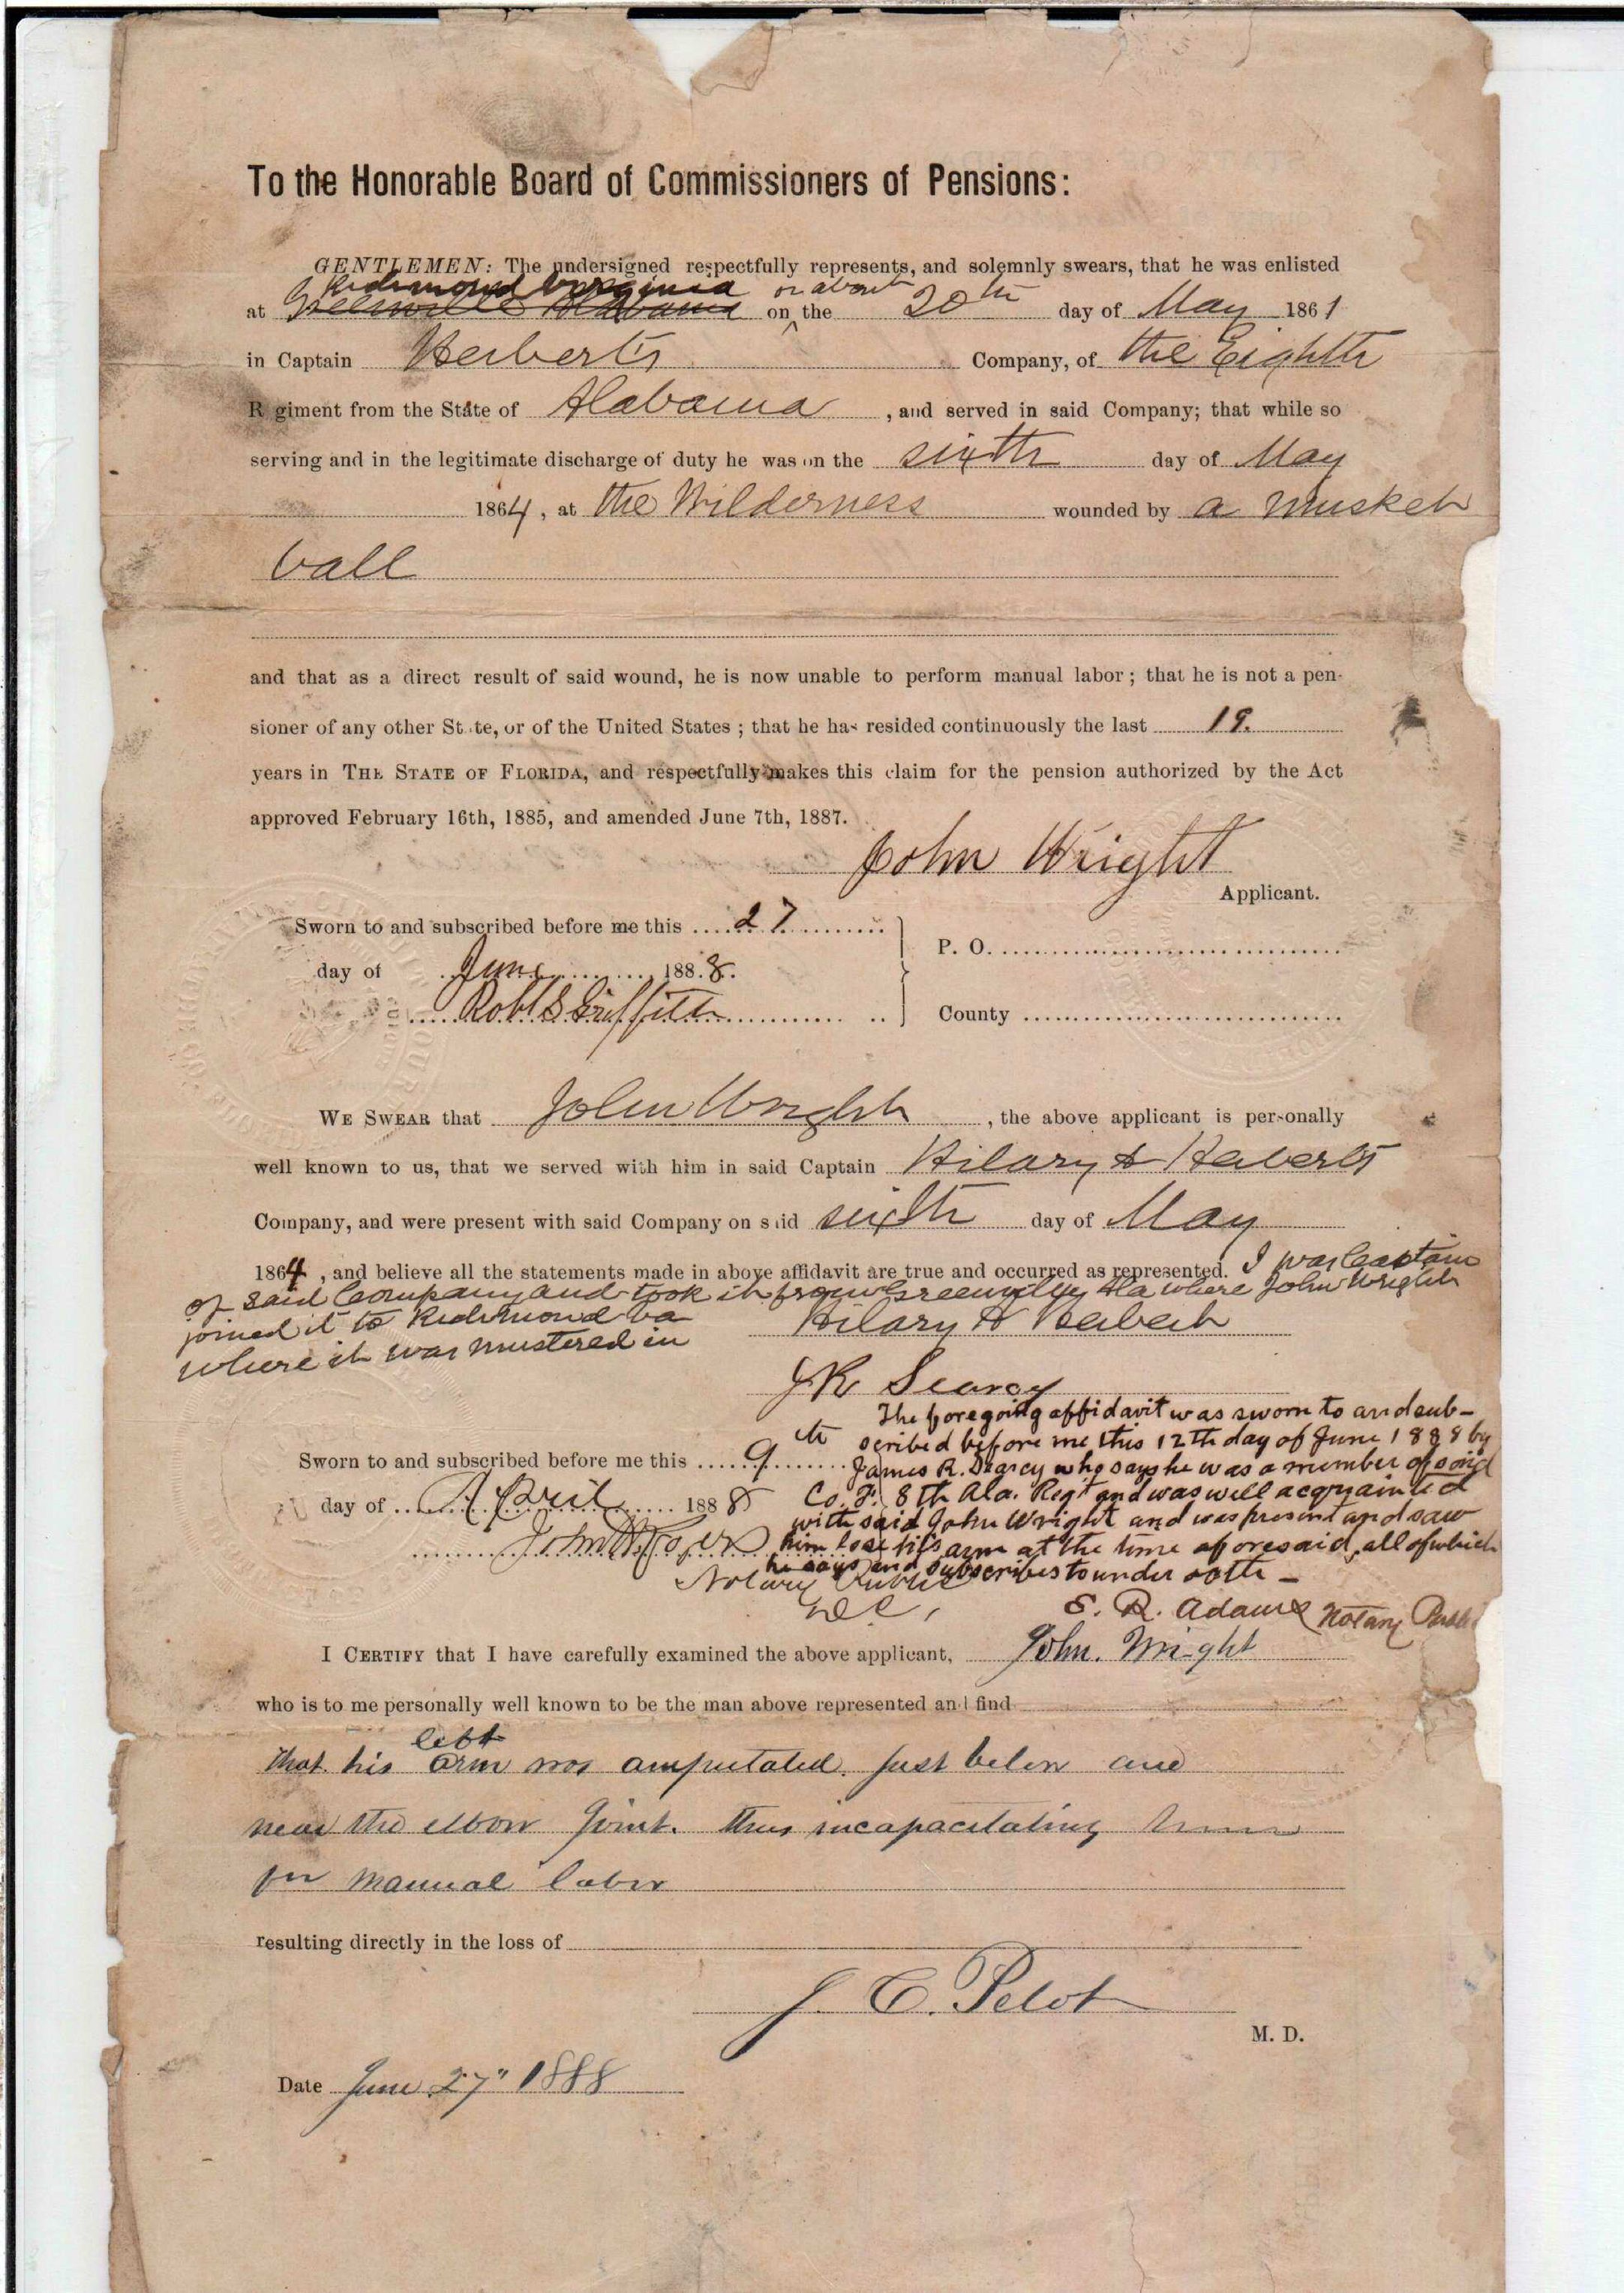 To the Honorable Board of Commissioners of Pensions:
GENTLEMEN: The undersigned respectfully represents, and solemnly swears, that he was enlisted
Richmond Virginia or about
at Greenville Alabama on the 20th day of May 1861
in Captain Herberts Company, of the Eighth
R giment from the State of Alabama , and served in said Company; that while so
serving and in the legitimate discharge of duty he was on the sixth day of May
1864, at the Wilderness wounded by a musket
ball
and that as a direct result of said wound, he is now unable to perform manual labor; that he is not a pen-
sioner of any other St te, or of the United States; that he has resided continuously the last 19.
years in THE STATE OF FLORIDA, and respectfully makes this claim for the pension authorized by the Act
approved February 16th, 1885, and amended June 7th, 1887.
John Wright
Applicant.
Sworn to and subscribed before me this 27
day of June 1888.
Robt S Griffith
P. O.
County
WE SWEAR that John Wright , the above applicant is personally
well known to us, that we served with him in said Captain Hilary A Herberts
Company, and were present with said Company on s id sixth day of May
1864 , and believe all the statements made in above affidavit are true and occurred as represented. I was Captain
of said Company and took it from Greenville Ala where John Wright
joined it to Richmond Va
where it was mustered in
Hilary A Herbert
JR Searcy
The foregoing affidavit was sworn to and sub-
scribed before me this 12th day of June 1888 by
James R. Searcy who says he was a member of said
Co. F. 8th Ala. Regt and was well acquainted
with said John Wright and was present and saw
him lose his arm at the time aforesaid, all of which
he says and subscribes to under oath -
S. R. Adams Notary Public
Sworn to and subscribed before me this 9th
day of April 1888
Notary Public
D.C.,
I CERTIFY that I have carefully examined the above applicant, John. Wright
who is to me personally well known to be the man above represented and find
left
that his arm was amputated. just below and
near the elbow joint. thus incapacitating him
for manual labor
resulting directly in the loss of
J. C. Pelot
M. D.
Date June 27" 1888